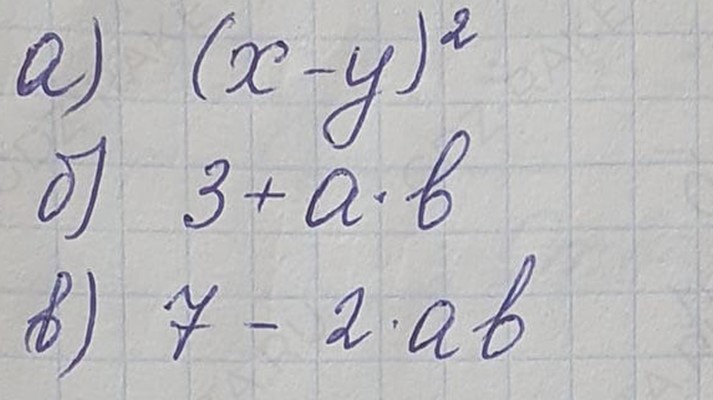 а) (x-y)²
б) 3+a·b
в) 7-2·ab